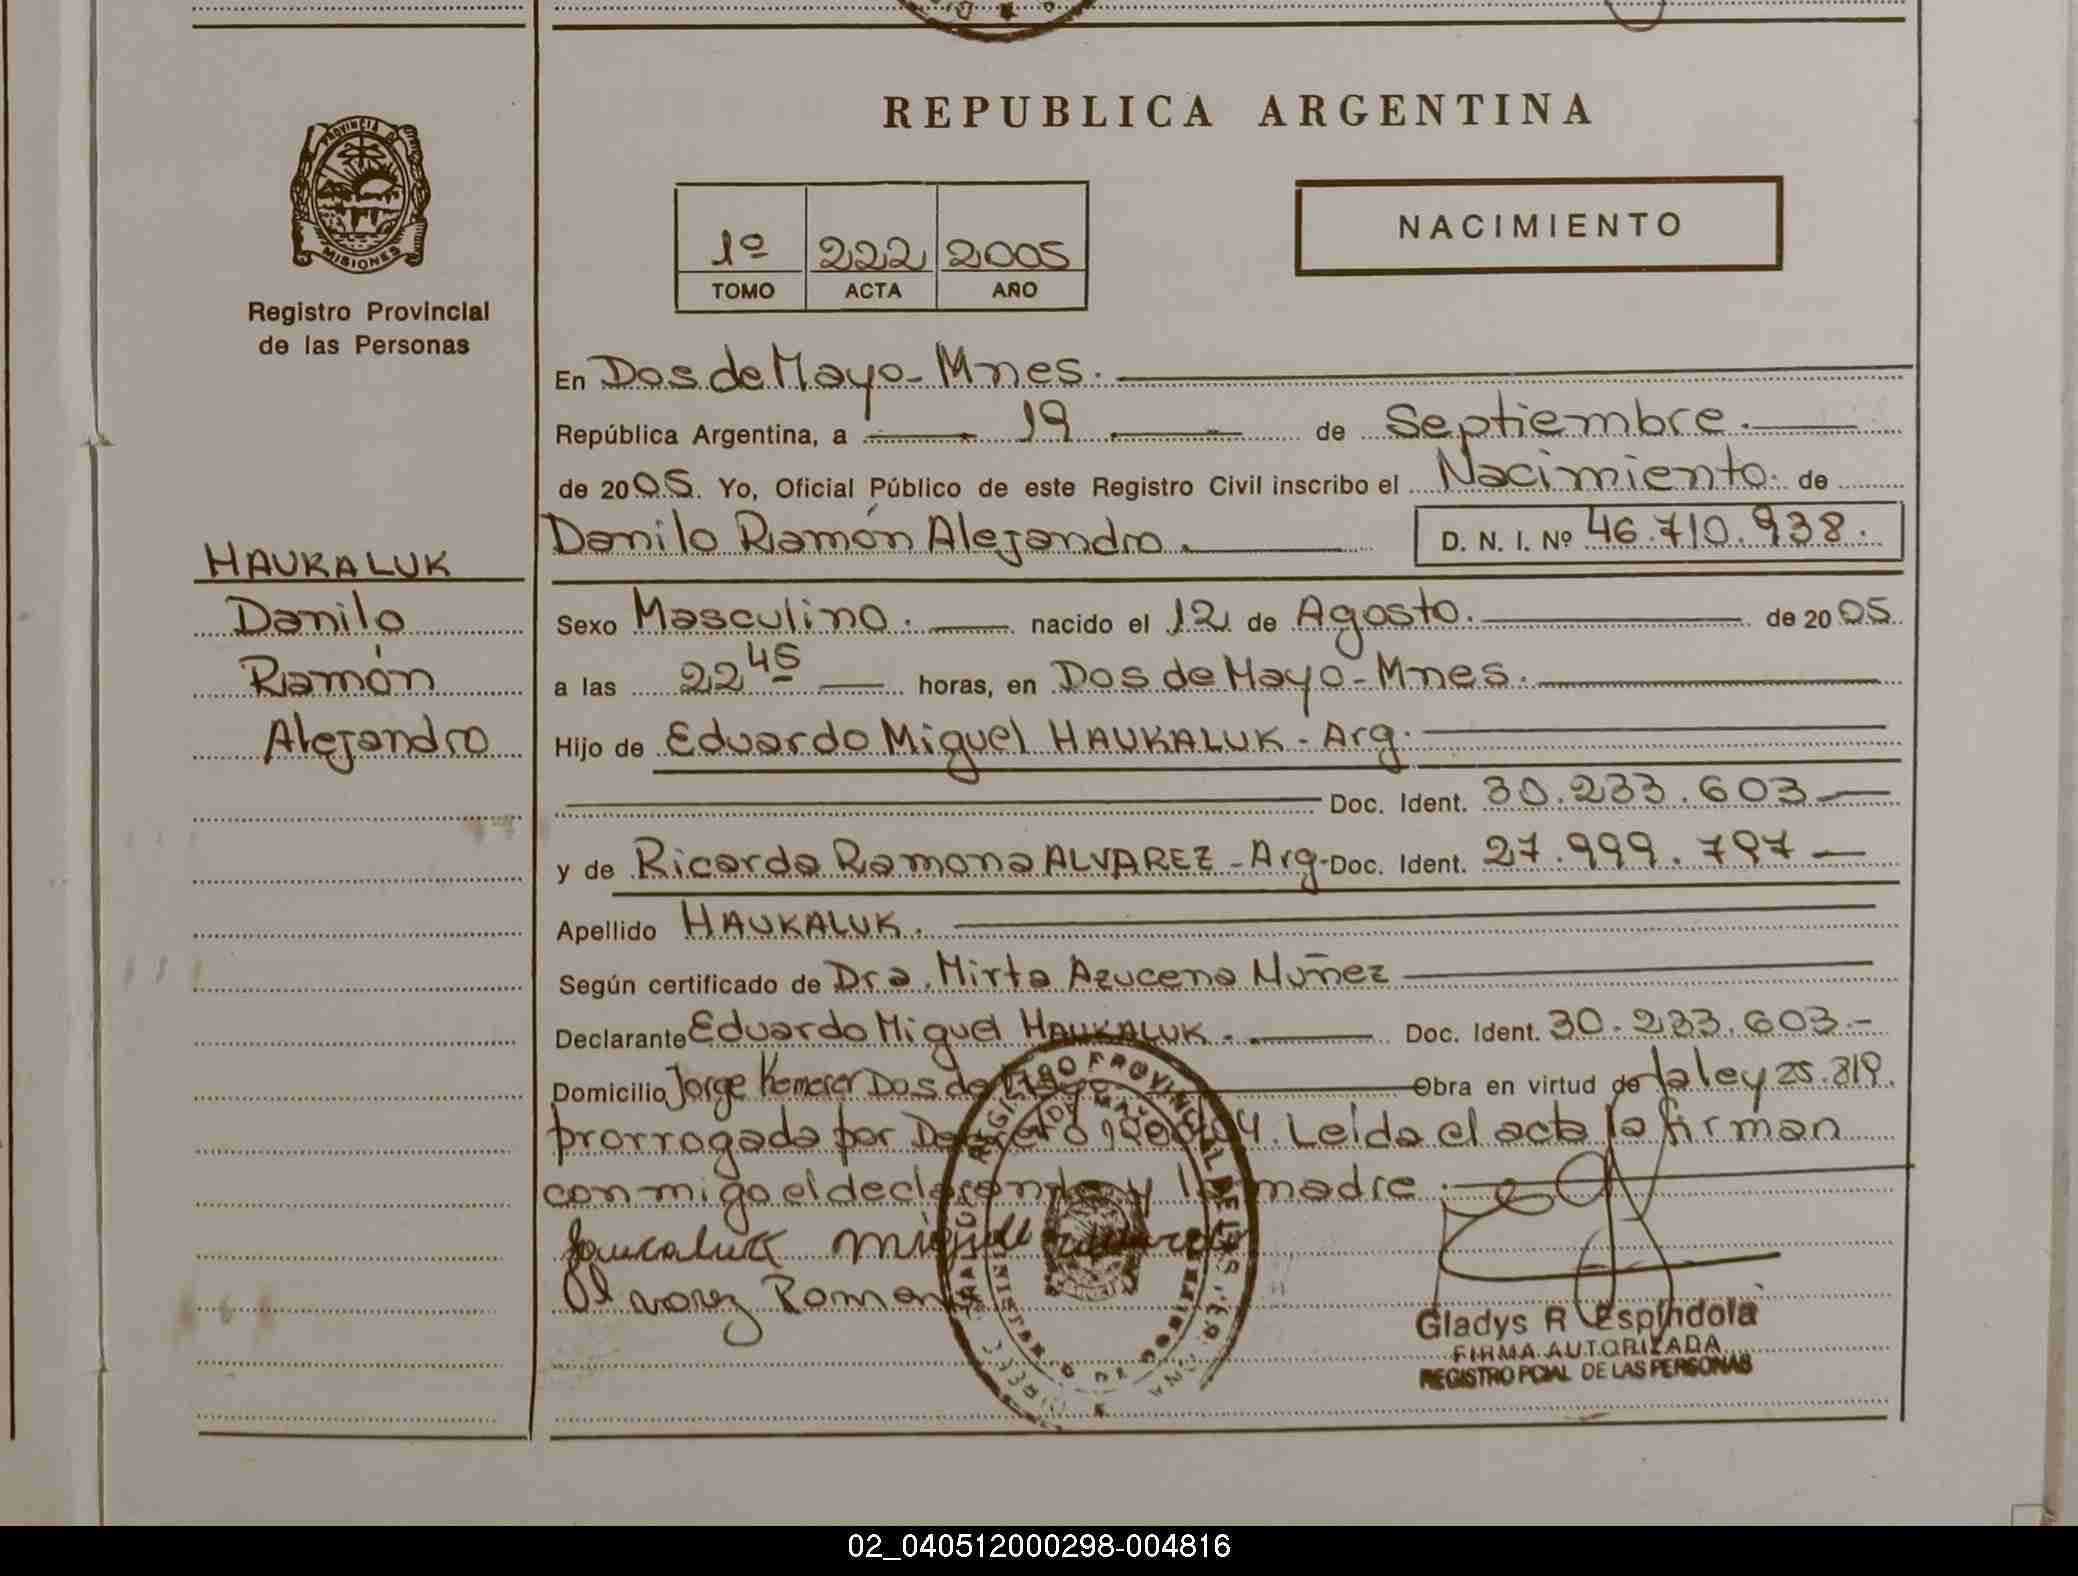 REPUBLICA ARGENTINA
PROVINCIA DE
MISIONES
Registro Provincial
de las Personas
1º 222 2005
TOMO ACTA AÑO
NACIMIENTO
En Dos de Mayo - Mnes.
República Argentina, a 19 de Septiembre.
de 2005. Yo, Oficial Público de este Registro Civil inscribo el Nacimiento de
Danilo Ramón Alejandro. D. N. I. Nº 46.710.938.
HAUKALUK
Danilo
Ramón
Alejandro
Sexo Masculino. nacido el 12 de Agosto. de 2005.
a las 22 45 horas, en Dos de Mayo - Mnes.
Hijo de Eduardo Miguel HAUKALUK - Arg.
Doc. Ident. 30.233.603
y de Ricarda Ramona ALVAREZ - Arg - Doc. Ident. 27.999.797
Apellido HAUKALUK.
Según certificado de Dra. Mirta Azucena Nuñez
Declarante Eduardo Miguel HAUKALUK. Doc. Ident. 30.233.603.-
Domicilio Jorge Kemerer Dos de Mayo Obra en virtud de la ley 25.819.
prorrogada por Decreto Leida el acta la firman
conmigo el declarante y la madre.
Miguel
Alvarez Ramona
Gladys R Espíndola
FIRMA AUTORIZADA
REGISTRO PCIAL DE LAS PERSONAS
02_040512000298-004816